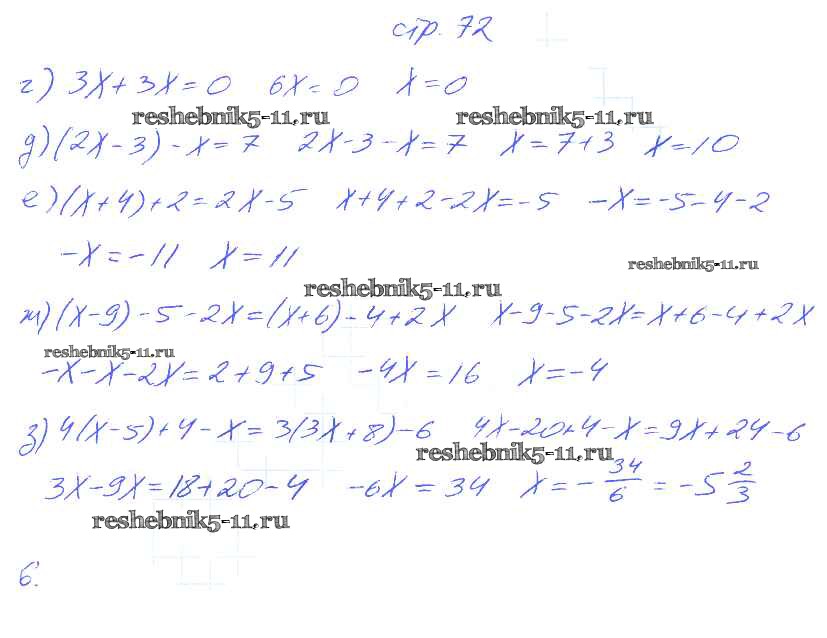 стр. 72
г) 3x+3x=0 6x=0 x=0
reshebnik5-11.ru reshebnik5-11.ru
д) (2x-3)-x=7 2x-3-x=7 x=7+3 x=10
е) (x+4)+2=2x-5 x+4+2-2x=-5 -x=-5-4-2
-x=-11 x=11
reshebnik5-11.ru
reshebnik5-11.ru
ж) (x-9)-5-2x=(x+6)-4+2x x-9-5-2x=x+6-4+2x
reshebnik5-11.ru
-x-x-2x=2+9+5 -4x=16 x=-4
з) 4(x-5)+4-x=3(3x+8)-6 4x-20+4-x=9x+24-6
reshebnik5-11.ru
3x-9x=18+20-4 -6x=34 x=-34/6=-5 2/3
reshebnik5-11.ru
б.